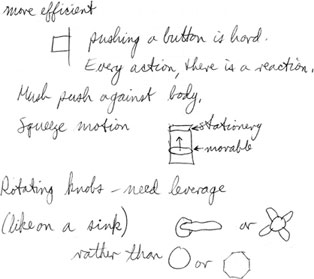 more efficient
pushing a button is hard.
Every action, there is a reaction.
Mush push against body.
Squeeze motion
stationery
movable
Rotating knobs - need leverage
(like on a sink)
or
rather than
or